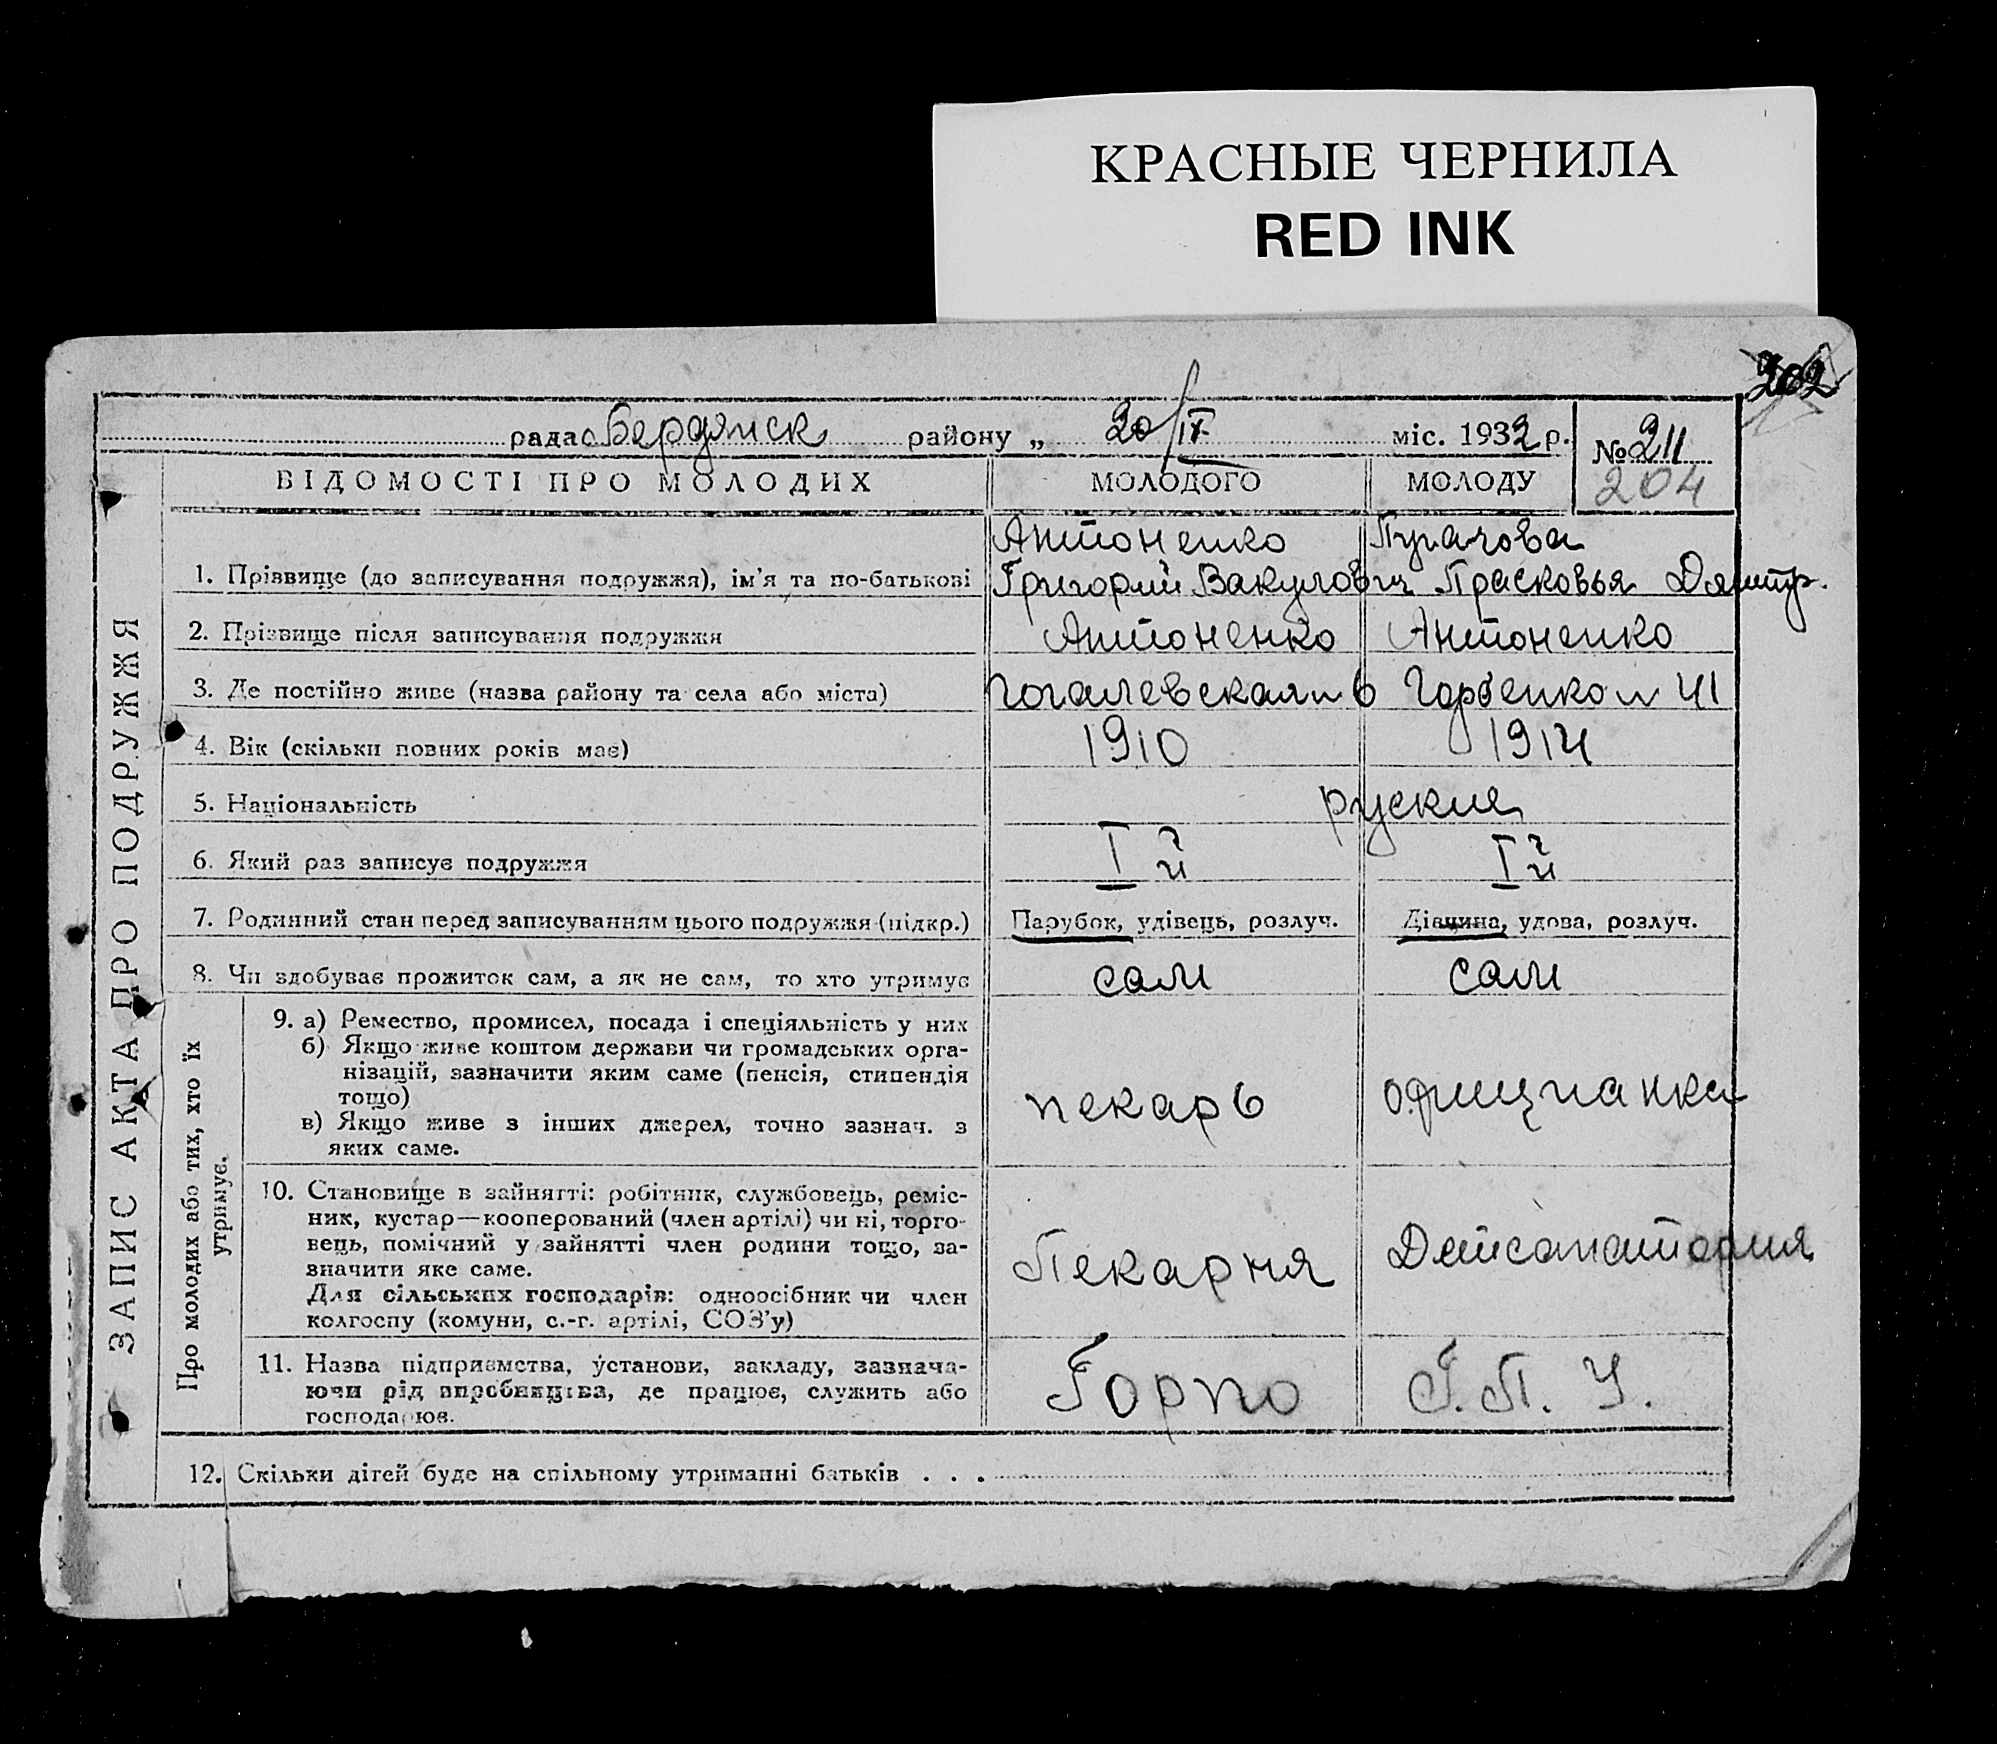 КРАСНЫЕ ЧЕРНИЛА
RED INK
202
рада Бердянск району „ 20/IX міс. 1932 р.
№ 211
204
ВІДОМОСТІ ПРО МОЛОДИХ МОЛОДОГО МОЛОДУ
Антоненко Пугачова
1. Прізвище (до записування подружжя), ім’я та по-батькові Григорий Вакулович Прасковья Дмитр.
2. Прізвище після записування подружжя Антоненко Антоненко
3. Де постійно живе (назва району та села або міста) Гогалевская 6 Горбенко 41
4. Вік (скільки повних років має) 1910 1914
5. Національність руские
6. Який раз записує подружжя I й I й
7. Родинний стан перед записуванням цього подружжя (підкр.) Парубок, удівець, розлуч. Дівчина, удова, розлуч.
8. Чи здобуває прожиток сам, а як не сам, то хто утримує сам сам
ЗАПИС АКТА ПРО ПОДРУЖЖЯ
Про молодих або тих, хто їх
утримує.
9. а) Ремество, промисел, посада і спеціяльність у них
б) Якщо живе коштом держави чи громадських орга-
нізацій, зазначити яким саме (пенсія, стипендія
тощо)
в) Якщо живе з інших джерел, точно зазнач. з
яких саме.
пекарь официанка
10. Становище в зайнятті: робітник, службовець, реміс-
ник, кустар—кооперований (член артілі) чи ні, торго-
вець, помічний у зайнятті член родини тощо, за-
значити яке саме.
Для сільських господарів: одноосібник чи член
колгоспу (комуни, с.-г. артілі, СОЗ’у)
Пекарня Детсанатория
11. Назва підприємства, установи, закладу, зазнача-
ючи рід виробництва, де працює, служить або
господарює.
Горпо Г. П. У.
12. Скільки дітей буде на спільному утриманні батьків . . .